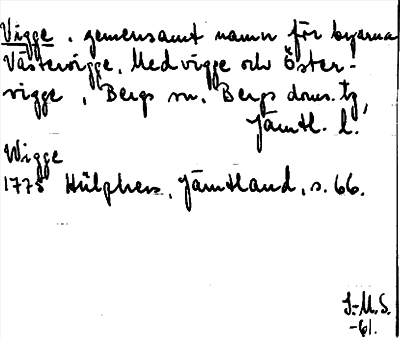 Vigge, gemensamt namn för byarna
Västervigge, Medvigge och Öster-
vigge, Bergs sn, Bergs doms. tg,
Jämtl. l.
Wigge
1775 Hülphers, Jämtland, s. 66.
S.-M.S.
-61.